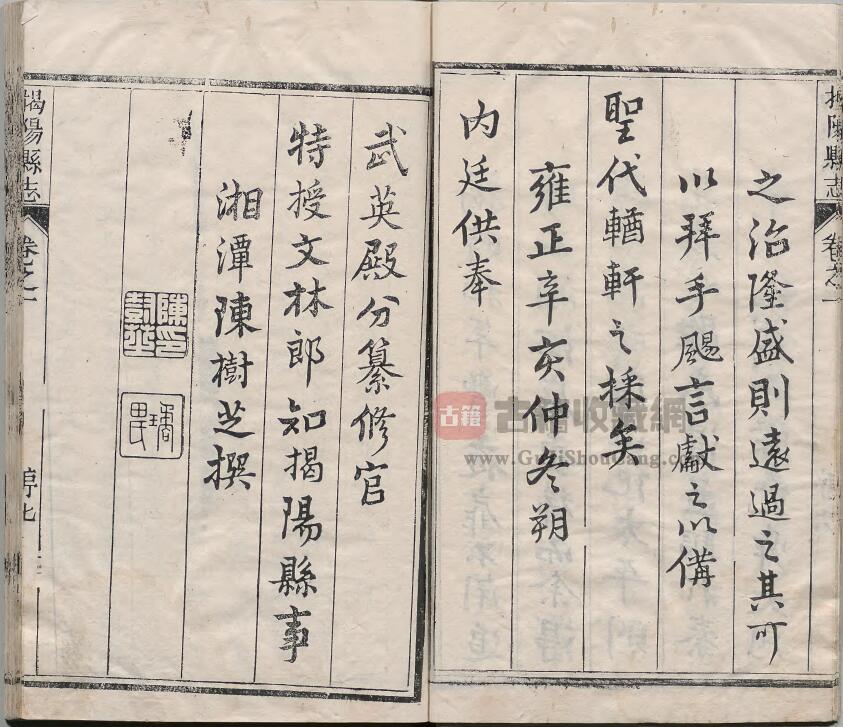 揭陽縣志
卷之一
之治隆盛則遠過之其可
以拜手颺言獻之以備
聖代輶軒之採矣
雍正辛亥仲冬朔
內廷供奉
武英殿分纂修官
特授文林郎知揭陽縣事
湘潭陳樹芝撰
揭陽縣志
卷之一
序七
古籍
古籍收藏網
www.GujiShouCang.com